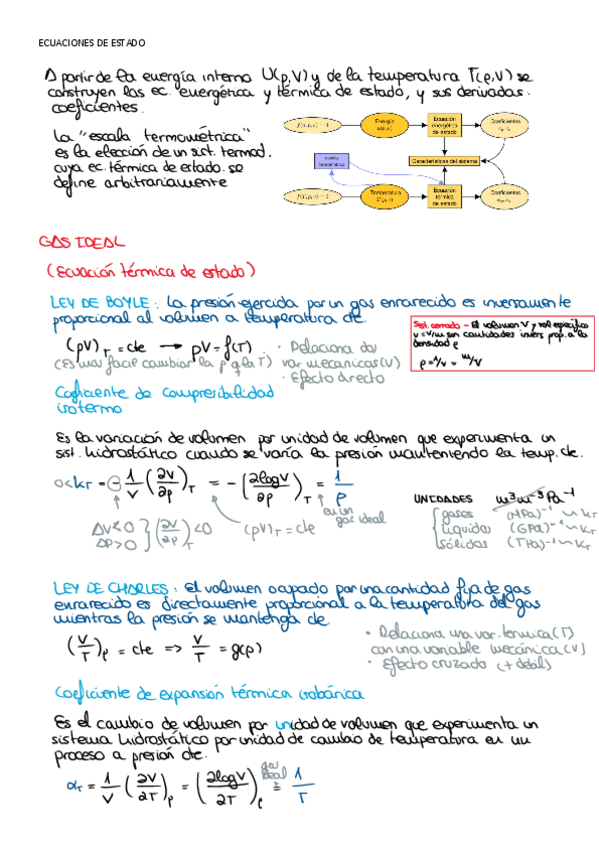 ECUACIONES DE ESTADO
A partir de la energía interna U(p,V) y de la temperatura T(p,V) se
construyen las ec. energética y térmica de estado, y sus derivadas:
coeficientes.
La "escala termométrica"
es la elección de un sist. termod.
cuya ec. térmica de estado se
define arbitrariamente
Energía
Ecuación
energética
de estado
Coeficientes
Características del sistema
Temperatura
Ecuación
térmica
de estado
Coeficientes
GAS IDEAL
(Ecuación térmica de estado)
LEY DE BOYLE: La presión ejercida por un gas enrarecido es inversamente
proporcional al volumen a temperatura cte.
Sist. cerrado - El volumen V y vol específico
v = V/m son cantidades invers prop. a la
densidad ρ
ρ = 1/v = m/V
(pV)T = cte → pV = f(T)
(Es más fácil cambiar la p q la T)
· Relaciona dos
var mecánicas (V)
· Efecto directo
Coeficiente de compresibilidad
isotermo
Es la variación de volumen por unidad de volumen que experimenta un
sist. hidrostático cuando se varía la presión manteniendo la temp. cte.
0 < kT = - 1/V (∂V/∂p)T = - (∂logV/∂p)T = 1/p
en un
gas ideal
ΔV < 0
ΔP > 0 } (∂V/∂p)T < 0
(pV)T = cte
UNIDADES m³m⁻³Pa⁻¹
gases (MPa)⁻¹ ~ kT
líquidos (GPa)⁻¹ ~ kT
sólidos (TPa)⁻¹ ~ kT
LEY DE CHARLES: el volumen ocupado por una cantidad fija de gas
enrarecido es directamente proporcional a la temperatura del gas
mientras la presión se mantenga cte
(V/T)p = cte => V/T = g(p)
· Relaciona una var. térmica (T)
con una variable mecánica (V)
· Efecto cruzado (+ débil)
Coeficiente de expansión térmica isobárica
Es el cambio de volumen por unidad de volumen que experimenta un
sistema hidrostático por unidad de cambio de temperatura en un
proceso a presión cte.
αT = 1/V (∂V/∂T)p = (∂logV/∂T)p = 1/T
gas
ideal